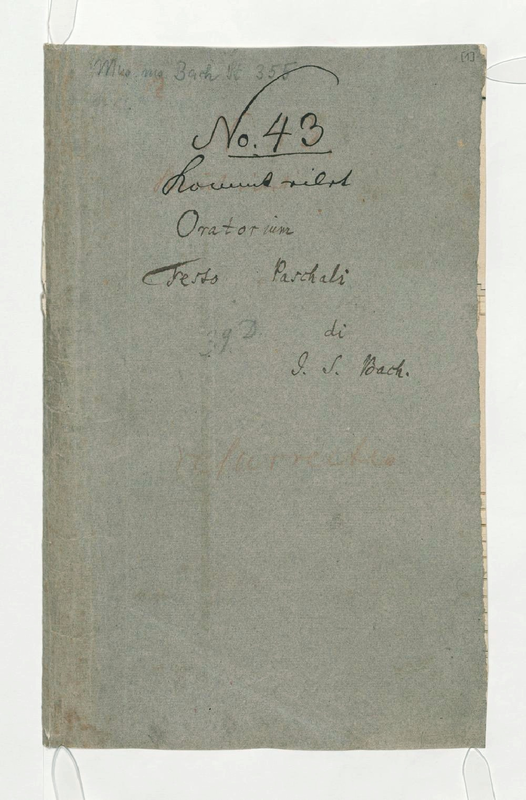 Mus. ms. Bach St 355
[1]
No. 43
Kommt eilet
Oratorium
Festo Paschali
di
J. S. Bach.